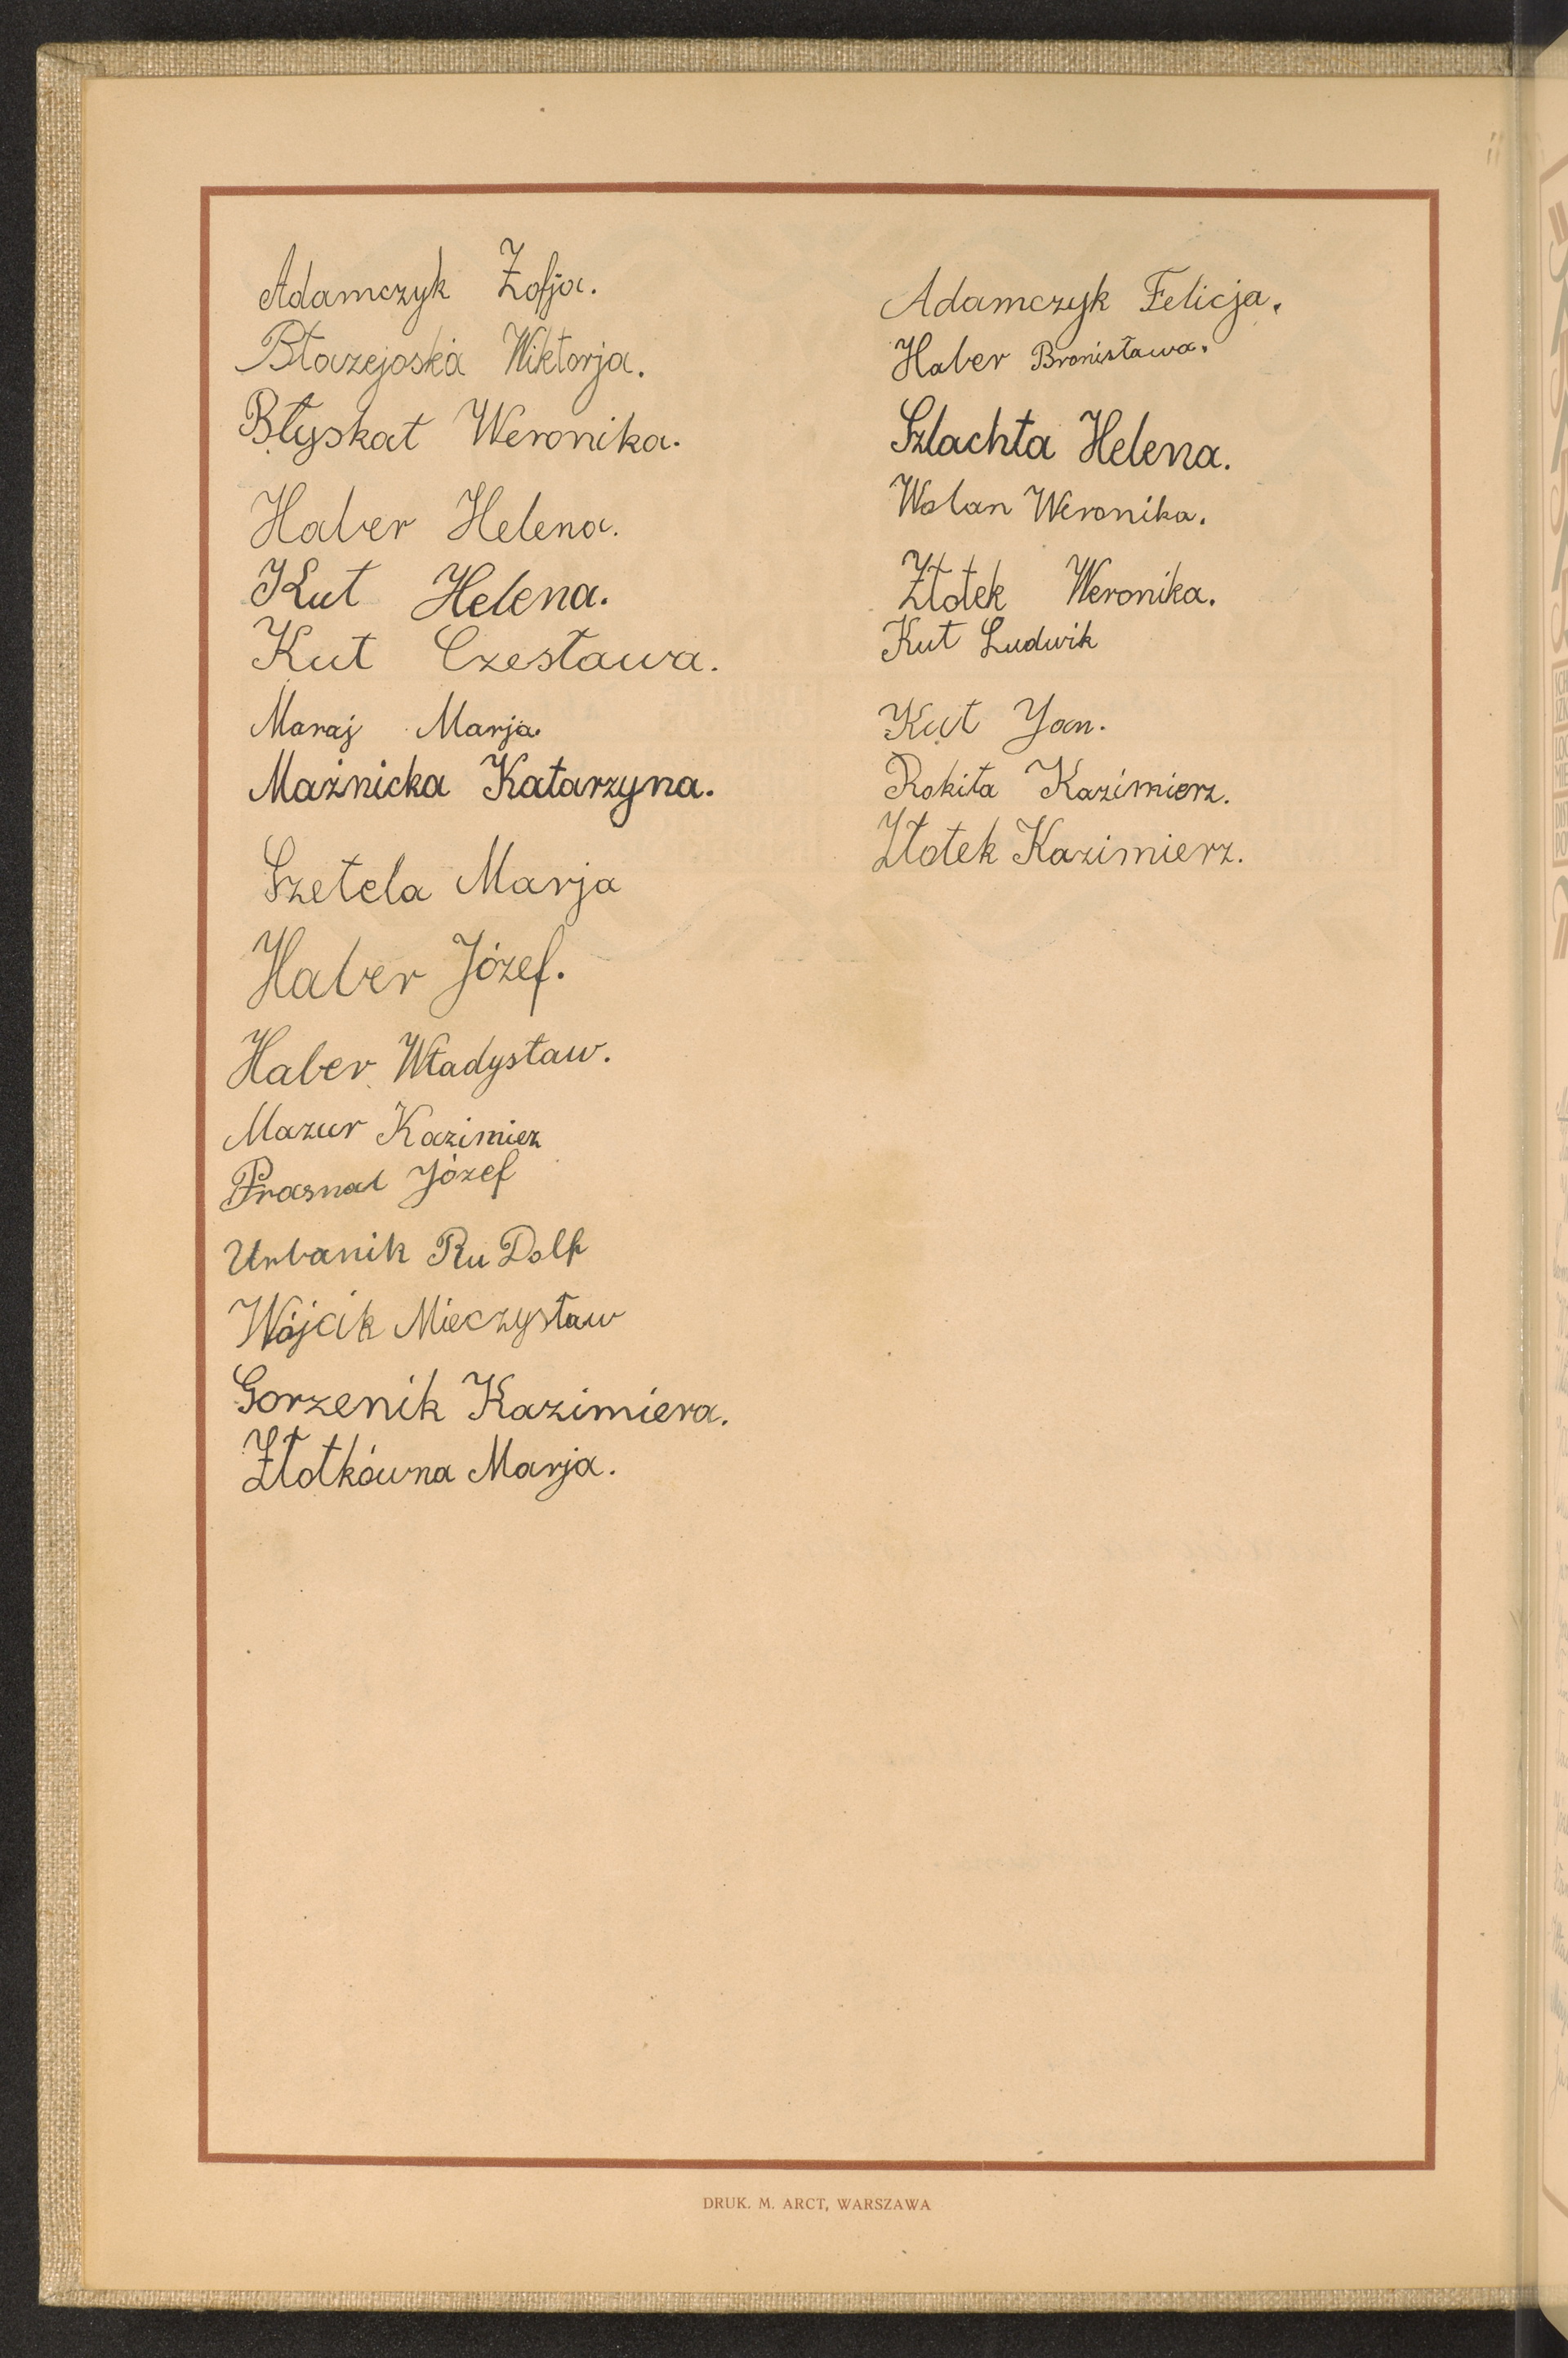 Adamczyk Zofja.
Błazejoska Wiktorja.
Błyskat Weronika.
Haber Helena.
Kut Helena.
Kut Czesława.
Maraj Marja.
Maźnicka Katarzyna.
Szetela Marja
Haber Józef.
Haber Władysław.
Mazur Kazimiez
Prasnal Józef
Urbanik RuDolf
Wójcik Mieczysław
Gorzenik Kazimiera.
Złotkówna Marja.
Adamczyk Felicja.
Haber Bronisława.
Szlachta Helena.
Wolan Weronika.
Złotek Weronika.
Kut Ludwik
Kut Jan.
Rokita Kazimierz.
Złotek Kazimierz.
DRUK. M. ARCT, WARSZAWA